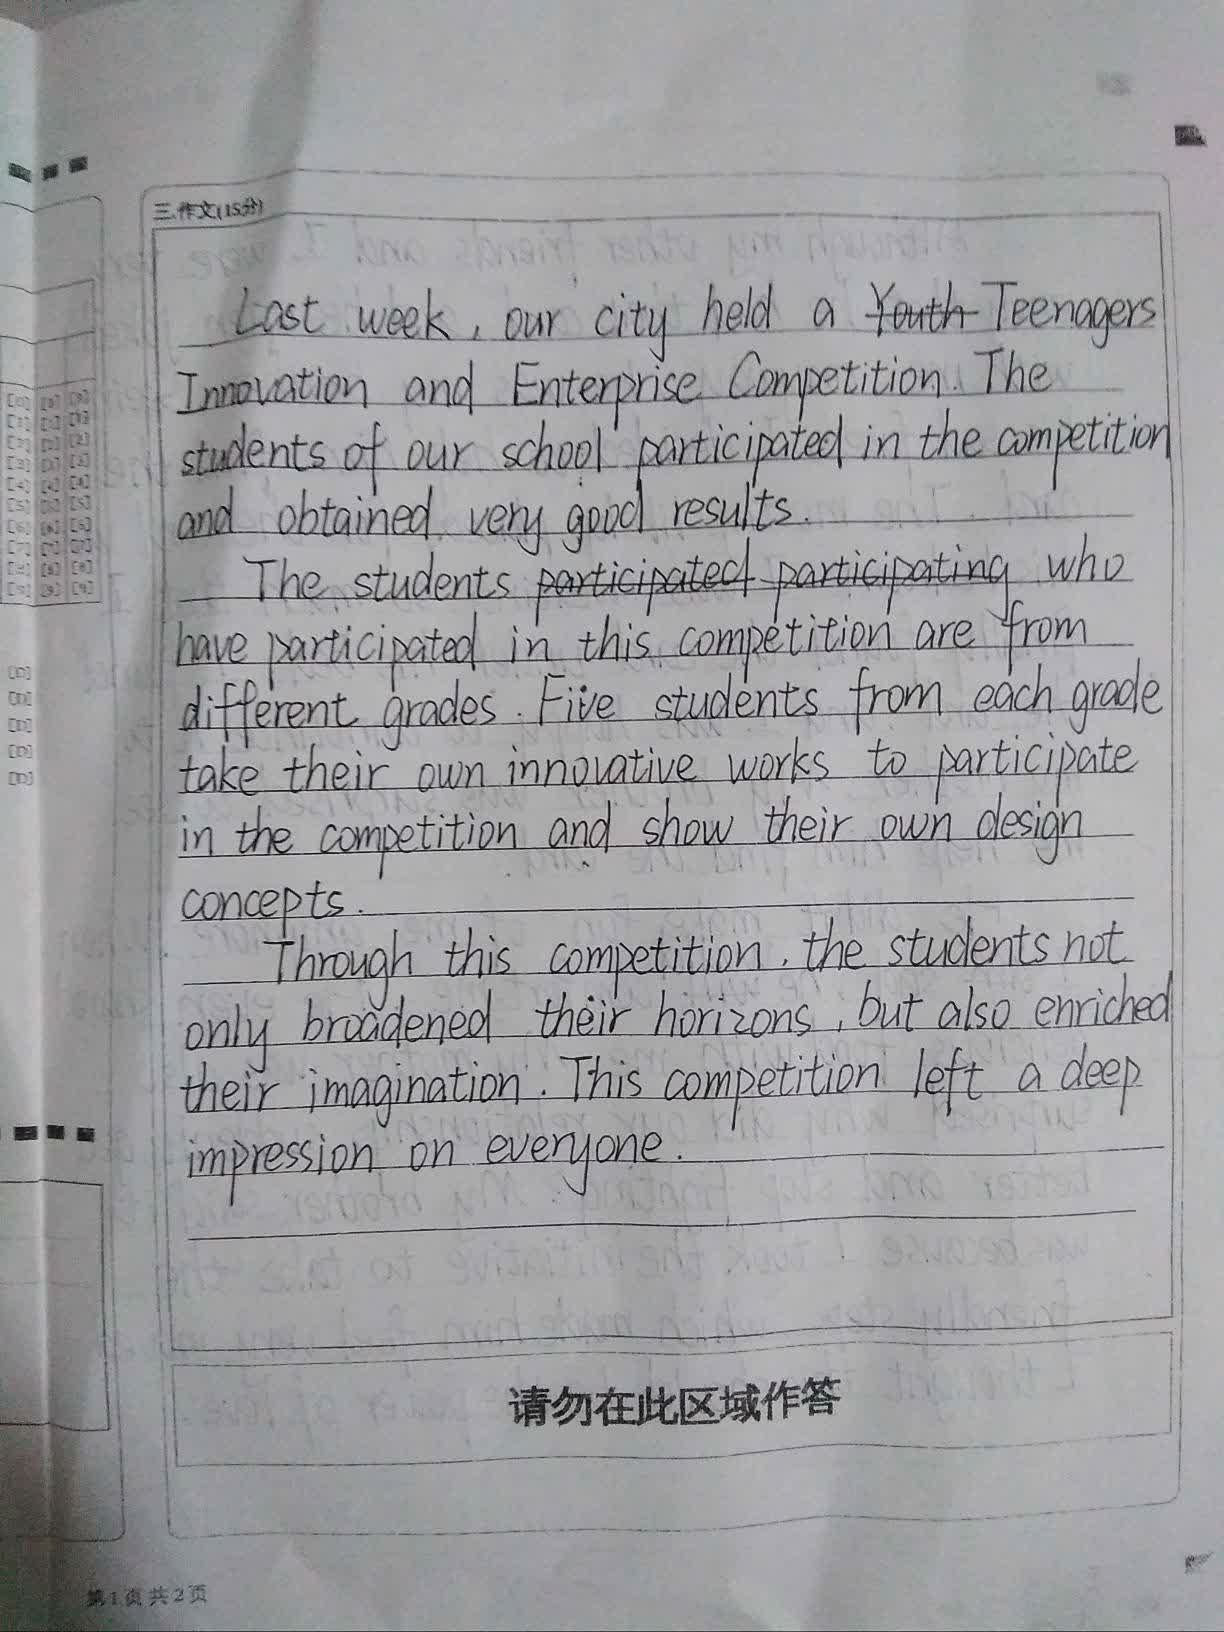 三.作文(15分)
Last week, our city held a Youth Teenagers
Innovation and Enterprise Competition. The
students of our school participated in the competition
and obtained very good results.
The students participated participating who
have participated in this competition are from
different grades. Five students from each grade
take their own innovative works to participate
in the competition and show their own design
concepts.
Through this competition, the students not
only broadened their horizons, but also enriched
their imagination. This competition left a deep
impression on everyone.
请勿在此区域作答
第1页共2页